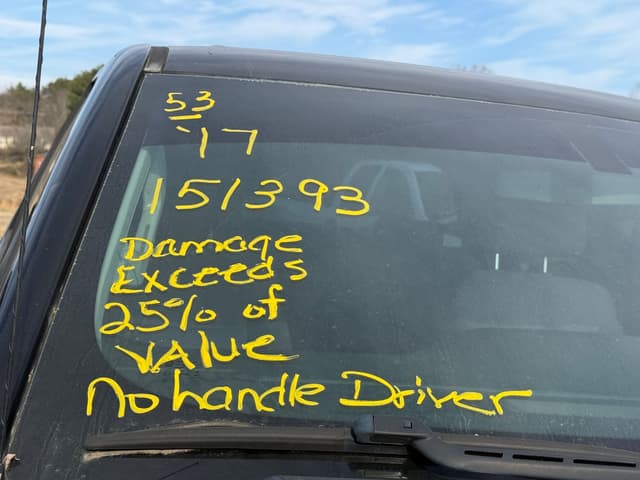 53
'17
151393
Damage
Exceeds
25% of
VAlue
No handle Driver